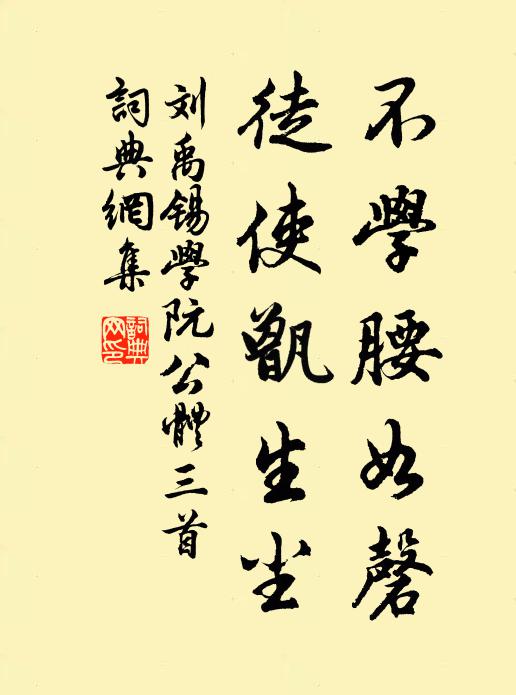 不學腰如磬
徒使甑生塵
刘禹锡學阮公體三首
詞典網集
詞典網印